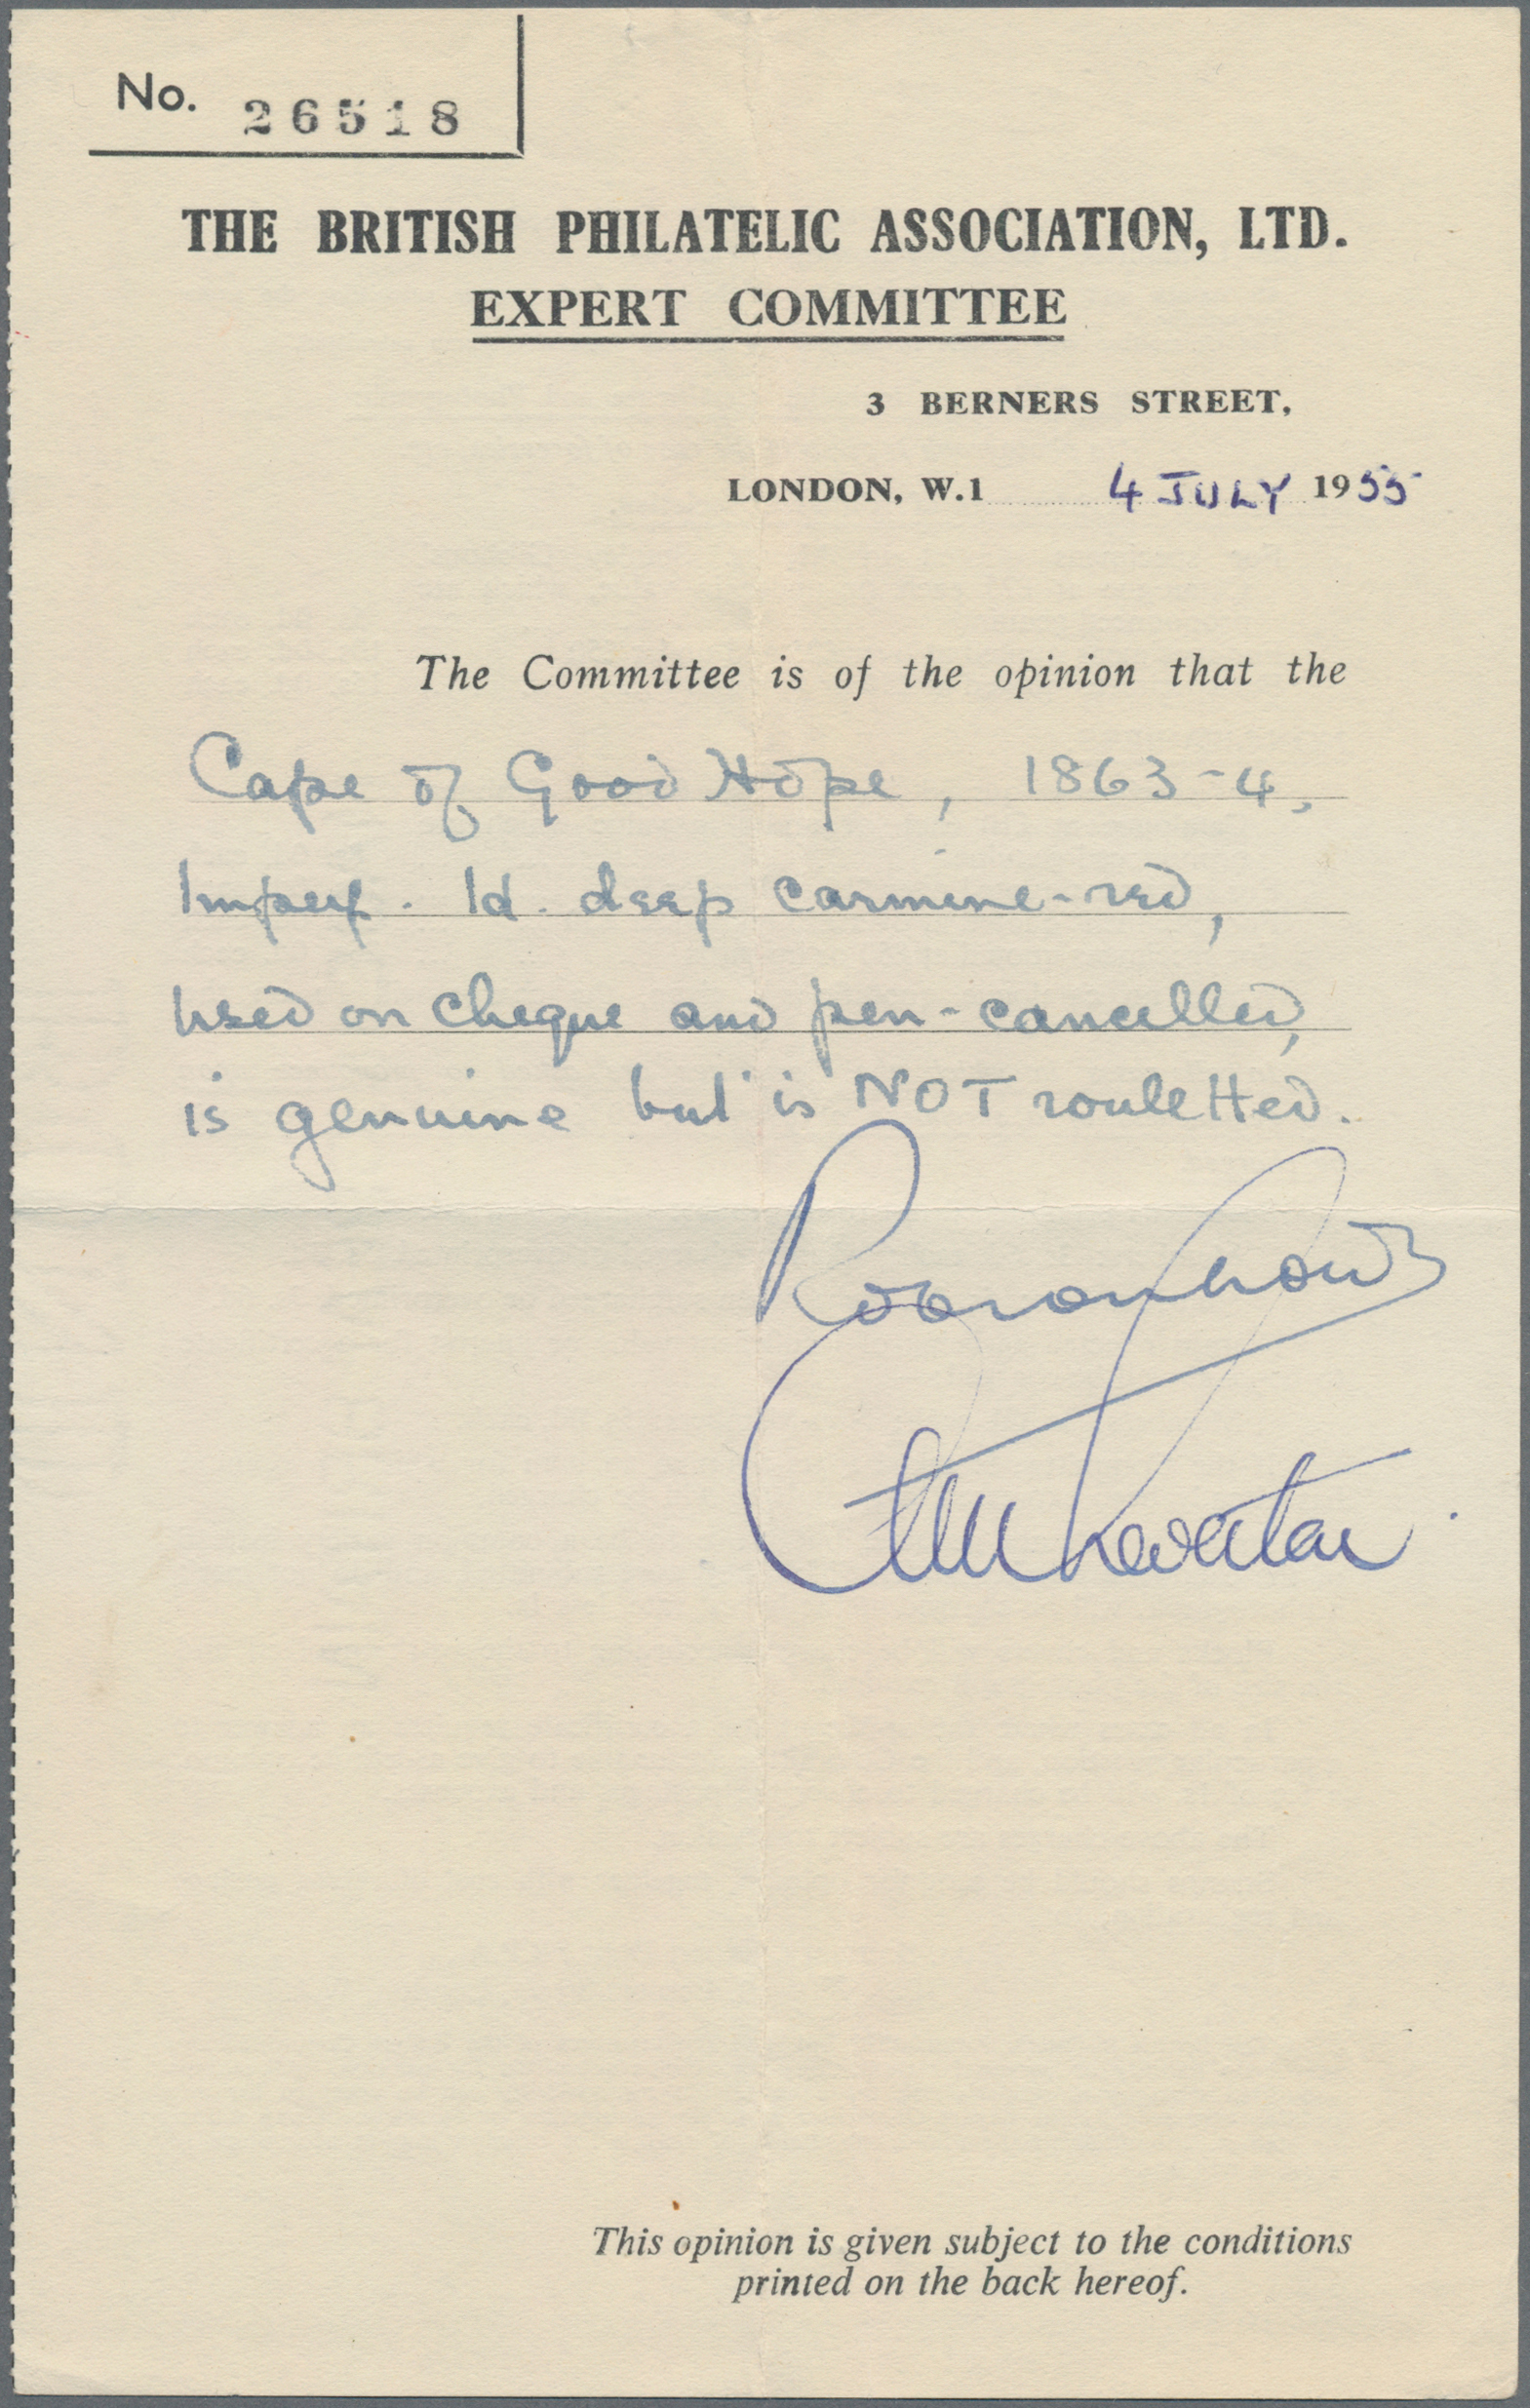 No. 26518
THE BRITISH PHILATELIC ASSOCIATION, LTD.
EXPERT COMMITTEE
3 BERNERS STREET,
LONDON, W.1 4 JULY 1955
The Committee is of the opinion that the
Cape of Good Hope, 1863-4,
Imperf. 1d. deep carmine-red,
used on cheque and pen-cancelled,
is genuine but is NOT rouletted.
This opinion is given subject to the conditions
printed on the back hereof.